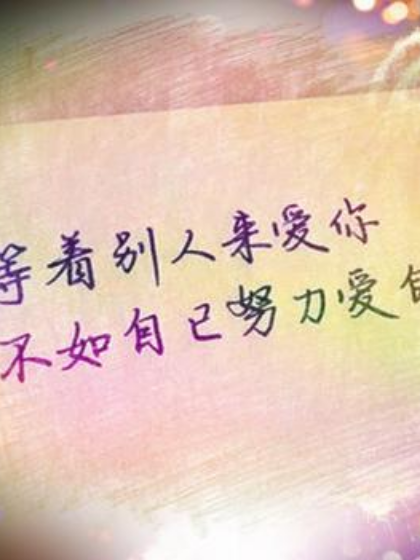 等着别人来爱你
不如自己努力爱自